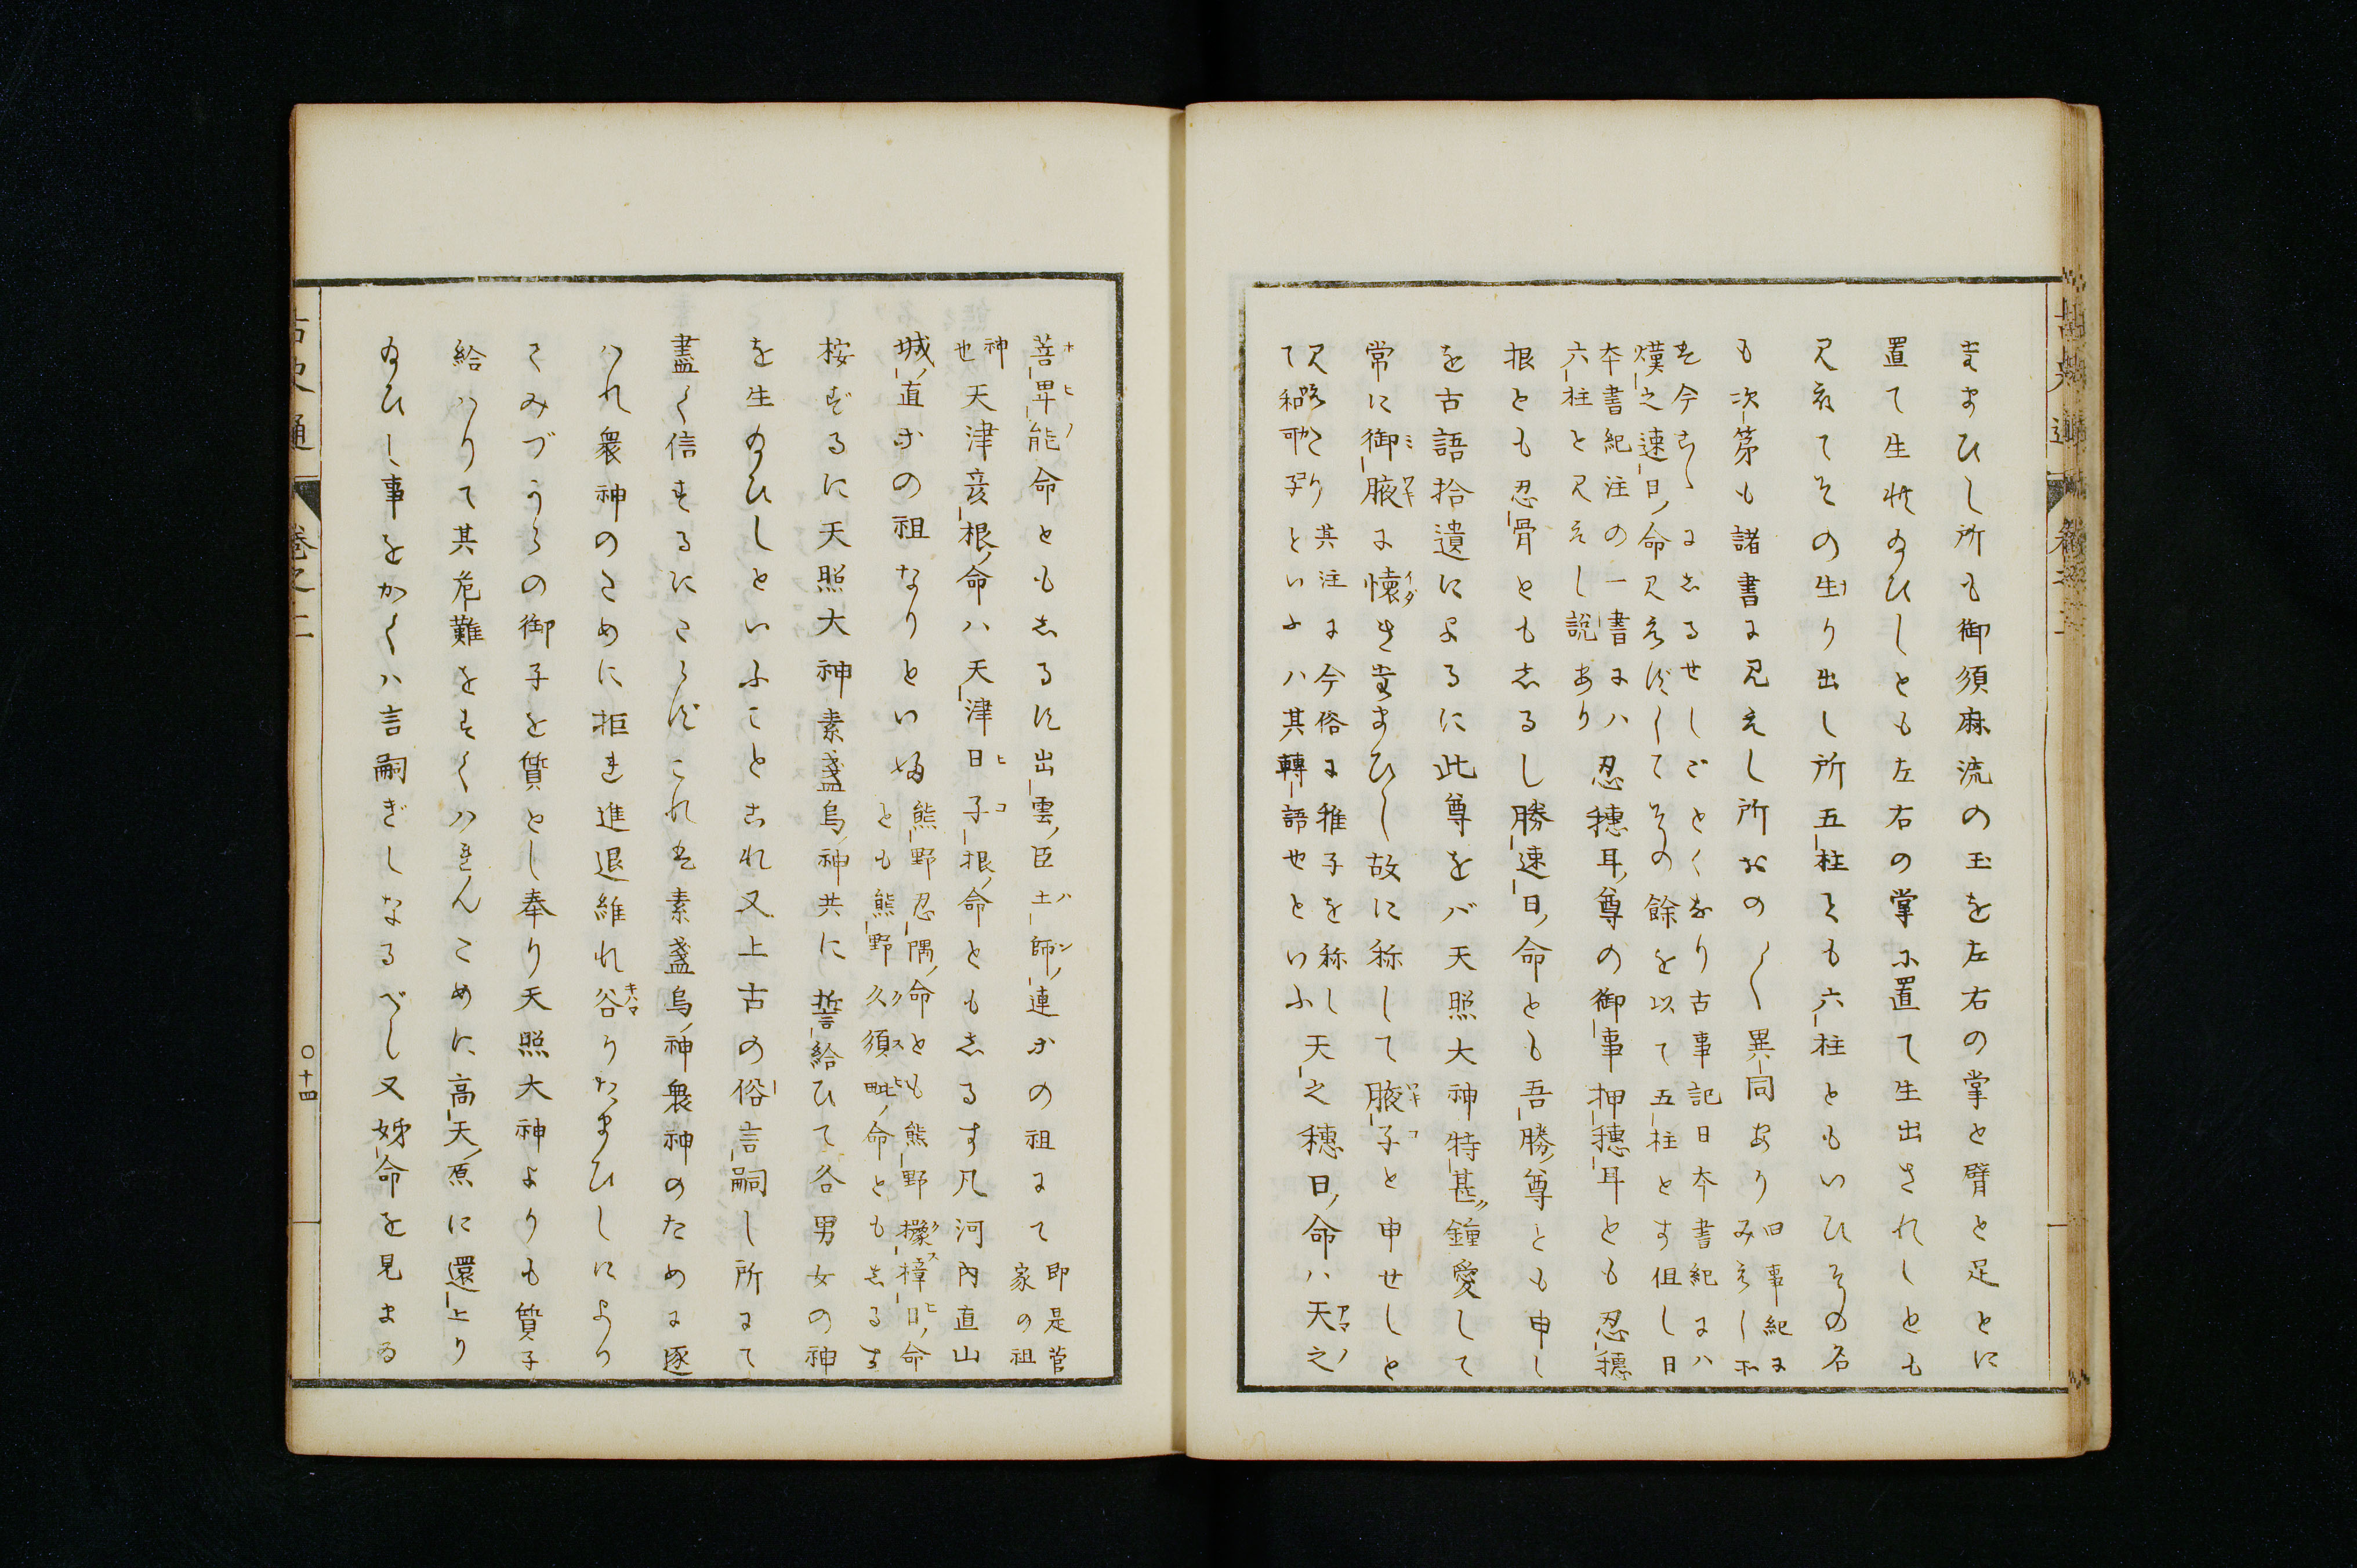 ままひし所も御須麻流の玉を左右の掌と臂と足とに
置て生れ給ひしとも左右の掌に置て生出されしとも
見えてその生り出し所五柱とも六柱ともいひその名
も次第も諸書に見えし所おの〱異同あり
旧事紀に
みえし所
は今こゝにしるせしごとくなり古事記日本書紀には
熯之速日命見えずしてその餘を以て五柱とす但し日
本書紀注の一書には
六柱と見えし説あり
忍穗耳尊の御事押穗耳とも忍穗
根とも忍骨ともしるし勝速日命とも吾勝尊とも申し
を古語拾遺によるに此尊をバ天照大神特甚鍾愛して
常に御腋に懐きまひし故に称して腋子と申せしと
見えたり其注に今俗に稚子を称し
て和可子といふハ其轉語也といふ
天之穗日命ハ天之
菩卑能命ともしるす出雲臣土師連等の祖にて
即是菅
家の祖
神
也
天津彦根命ハ天津日子根命ともしるす凡河内直山
城直等の祖なりといひ
熊野忍隅命とも熊野櫲樟日命
とも熊野久須毗命ともしるす
按ずるに天照大神素盞烏神共に誓給ひて各男女の神
を生給ひしといふことこれ又上古の俗言嗣し所にて
盡く信ずるにたらずこれは素盞烏神衆神のために逐
ハれ衆神のために拒まれ進退維れ谷りたまひしにより
てみづからの御子を質とし奉り天照大神よりも質子
給ハりて其危難をすくハれんために高天原に還上り
給ひし事をかくハ言嗣ぎしなるべし又姊命を見まゐ
古史通
巻之二
〇十四